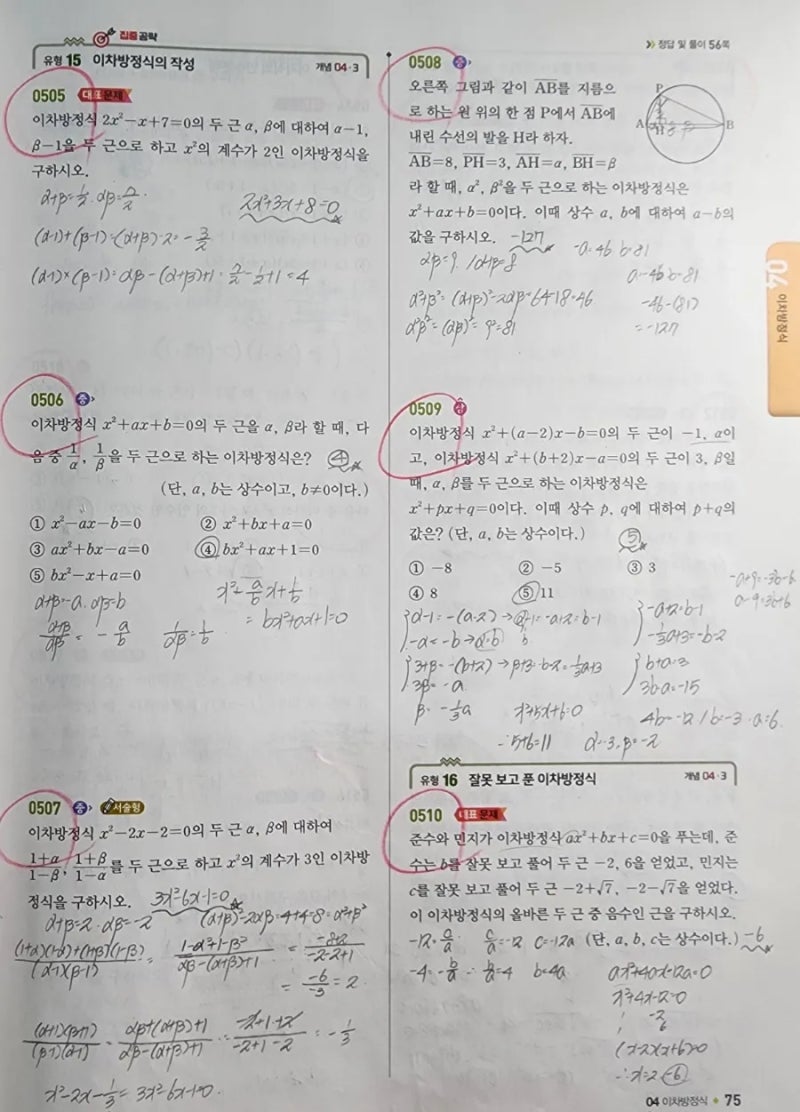 집중공략
유형 15 이차방정식의 작성 개념 04·3
0505 대표문제
이차방정식 2x²-x+7=0의 두 근 α, β에 대하여 α-1,
β-1을 두 근으로 하고 x²의 계수가 2인 이차방정식을
구하시오.
α+β=½. αβ=7/2 2x²+3x+8=0
(α-1)+(β-1)=(α+β)-2=-3/2
(α-1)×(β-1)=αβ-(α+β)+1=7/2-½+1=4
0506 중
이차방정식 x²+ax+b=0의 두 근을 α, β라 할 때, 다
음 중 1/α, 1/β을 두 근으로 하는 이차방정식은? ④
(단, a, b는 상수이고, b≠0이다.)
① x²-ax-b=0 ② x²+bx+a=0
③ ax²+bx-a=0 ④ bx²+ax+1=0
⑤ bx²-x+a=0
α+β=-a. αβ=b
(α+β)/αβ=-a/b 1/αβ=1/b
= bx²+ax+1=0
0507 중 서술형
이차방정식 x²-2x-2=0의 두 근 α, β에 대하여
(1+α)/(1-β), (1+β)/(1-α)를 두 근으로 하고 x²의 계수가 3인 이차방
정식을 구하시오. 3x²-6x-1=0
α+β=2. αβ=-2 (α+β)²-2αβ=4+4=8=α²+β²
(1-α²+1-β²)/(αβ-(α+β)+1) = (-8+2)/(-2-2+1)
= -6/-3 = 2
(α+1)(β+1)/(β-1)(α-1) = (αβ+(α+β)+1)/(αβ-(α+β)+1) = (-2+1+2)/(-2+1-2) = -1/3
x²-2x-1/3= 3x²-6x-1=0.
정답 및 풀이 56쪽
0508 중
오른쪽 그림과 같이 AB를 지름으
로 하는 원 위의 한 점 P에서 AB에
내린 수선의 발을 H라 하자.
AB=8, PH=3, AH=α, BH=β
P
A
H
B
라 할 때, α², β²을 두 근으로 하는 이차방정식은
x²+ax+b=0이다. 이때 상수 a, b에 대하여 a-b의
값을 구하시오. -127
-a=46 b=81
αβ=9. / α+β=8
a=-46 b=81
α²+β²=(α+β)²-2αβ=64-18=46
-46-(81)
α²β²=(αβ)²=9²=81
=-127
0509 상
이차방정식 x²+(a-2)x-b=0의 두 근이 -1, α이
고, 이차방정식 x²+(b+2)x-a=0의 두 근이 3, β일
때, α, β를 두 근으로 하는 이차방정식은
x²+px+q=0이다. 이때 상수 p, q에 대하여 p+q의
값은? (단, a, b는 상수이다.) ⑤
① -8 ② -5 ③ 3
④ 8 ⑤ 11
α-1=-(a-2)
-α=-b
-a+2=b-1
-⅓a+3=-b-2
3+β=-(b+2)→β+3=-b-2=-⅓a+3
3β=-a
b+a=3
3b-a=-15
β=-⅓a x²+5x+6=0
4b=-12 / b=-3. a=6.
∴5+6=11 α=-3. β=-2
유형 16 잘못 보고 푼 이차방정식 개념 04·3
0510 대표문제
준수와 민지가 이차방정식 ax²+bx+c=0을 푸는데, 준
수는 b를 잘못 보고 풀어 두 근 -2, 6을 얻었고, 민지는
c를 잘못 보고 풀어 두 근 -2+√7, -2-√7을 얻었다.
이 이차방정식의 올바른 두 근 중 음수인 근을 구하시오.
(단, a, b, c는 상수이다.) -6
-12=c/a c/a=-12 c=-12a
-4=-b/a ∴b/a=4 b=4a
ax²+4ax-12a=0
x²+4x-12=0
-2
6
(x-2)(x+6)=0
∴x=2 -6
04
이차방정식
04 이차방정식 75